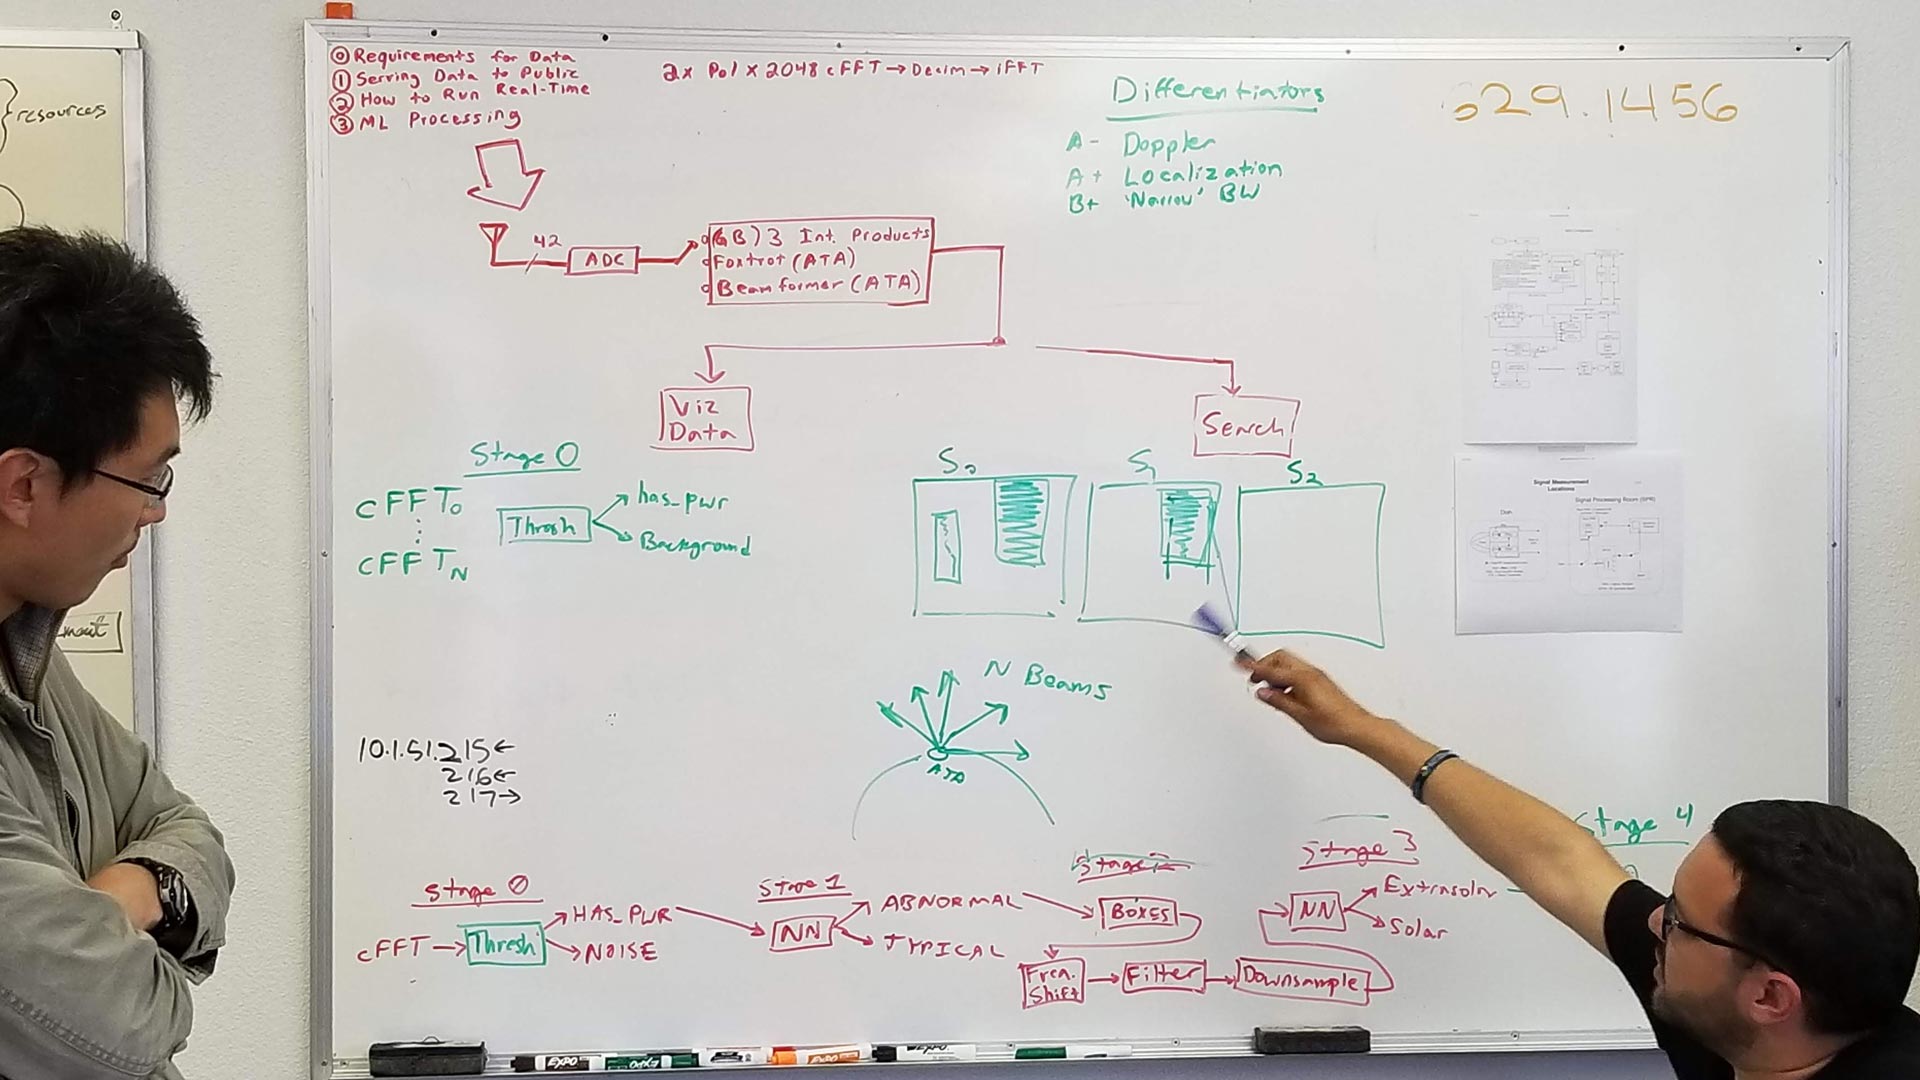 resources
⓪ Requirements for Data
① Serving Data to Public
② How to Run Real-Time
③ ML Processing
2x Pol x 2048 cFFT → Decim → iFFT
Differentiators
A- Doppler
A+ Localization
B+ 'Narrow' BW
629.1456
42
ADC
(GB) 3 Int. Products
Foxtrot (ATA)
Beamformer (ATA)
Viz
Data
Search
Signal Measurement
Locations
Signal Processing Room (SPR)
Dish
Stage 0
cFFT0
cFFTN
Thresh
has_pwr
Background
S0
S1
S2
N Beams
ATA
10.1.51.215←
216←
217→
Stage 0
cFFT → Thresh
HAS_PWR
NOISE
Stage 1
NN
ABNORMAL
TYPICAL
Stage 2
BOXES
Freq.
Shift
Filter
Downsample
Stage 3
NN
Extrasolar
Solar
Stage 4
EXPO
EXPO
EXPO
EXPO